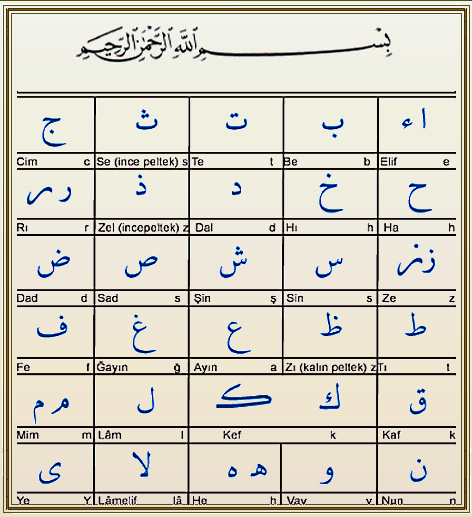 بِسْمِ اللَّهِ الرَّحْمَٰنِ الرَّحِيمِ
ا ء ب ت ث ج
Cim c Se (ince peltek) s Te t Be b Elif e
ح خ د ذ ر ر
Rı r Zel (incepeltek) z Dal d Hı h Ha h
ز ز س ش ص ض
Dad d Sad s Şin ş Sin s Ze z
ط ظ ع غ ف
Fe f Ğayın ğ Ayın a Zı (kalın peltek) z Tı t
ق ك ک ل م م
Mim m Lâm l Kef k Kaf k
ن و ه ه لا ى
Ye Y Lâmelif lâ He h Vav v Nun n